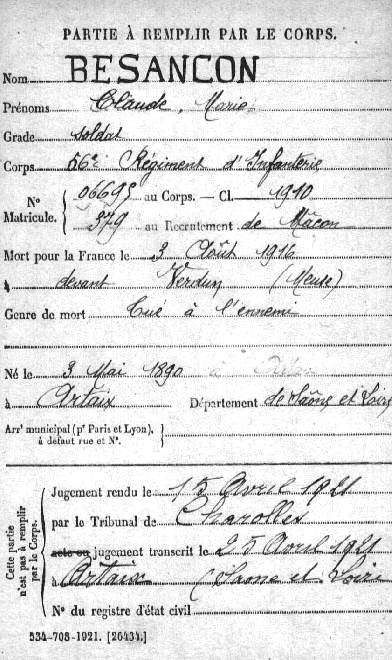 PARTIE À REMPLIR PAR LE CORPS.
Nom BESANÇON
Prénoms Claude, Marie
Grade soldat
Corps 56e Régiment d'Infanterie
N° Matricule. { 06695 au Corps. — Cl. 1910
379 au Recrutement de Mâcon
Mort pour la France le 3 Août 1916
à devant Verdun (Meuse)
Genre de mort Tué à l'ennemi
Né le 3 Mai 1890
à Artaix Département de Saône et Loire
Arr' municipal (p' Paris et Lyon),
à défaut rue et N°.
Cette partie n'est pas à remplir par le Corps.
Jugement rendu le 15 Avril 1921
par le Tribunal de Charolles
acte ou jugement transcrit le 25 Avril 1921
à Artaix (Saone et Loire
N° du registre d'état civil
534-708-1921. [26434.]